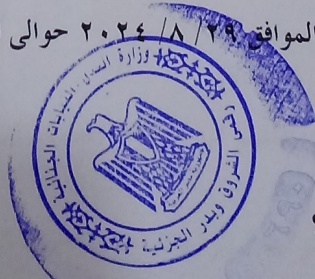 الموافق ٢٩ / ٨ / ٢٠٢٤ حوالى
وزارة العدل - النيابات الجنائية
الشروق وبدر الجزئية